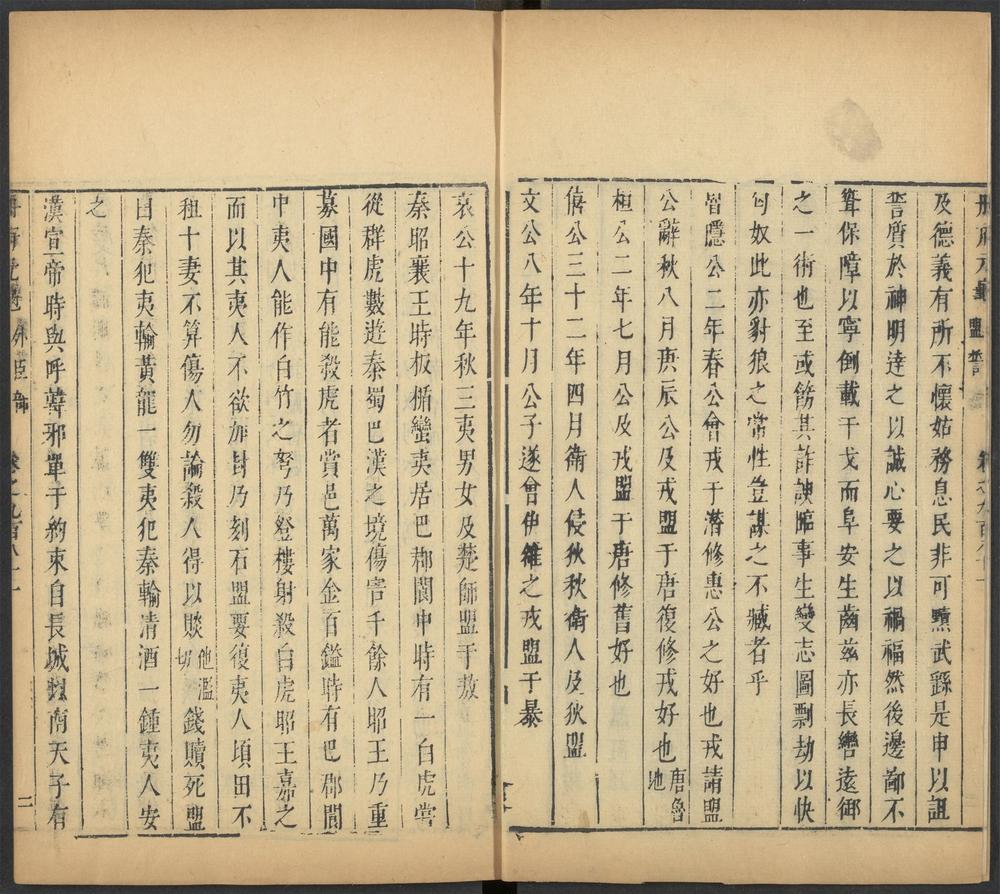 冊府元龜 盟誓 卷之九百八十一
及德義有所不懷姑務息民非可黷武繇是申以詛
誓質於神明達之以誠心要之以禍福然後邊鄙不
聳保障以寧倒載干戈而阜安生齒茲亦長轡遠御
之一術也至或飾其詐諛臨事生變志圖剽劫以快
匈奴此亦豺狼之常性豈謀之不臧者乎
魯隱公二年春公會戎于潛修惠公之好也戎請盟
公辭秋八月庚辰公及戎盟于唐復修戎好也唐魯地
桓公二年七月公及戎盟于唐修舊好也
僖公三十二年四月衛人侵狄秋衛人及狄盟
文公八年十月公子遂會伊雒之戎盟于暴
哀公十九年秋三夷男女及楚師盟于敖
秦昭襄王時板楯蠻夷居巴郡閬中時有一白虎嘗
從群虎數遊秦蜀巴漢之境傷害千餘人昭王乃重
募國中有能殺虎者賞邑萬家金百鎰時有巴郡閬
中夷人能作白竹之弩乃登樓射殺白虎昭王嘉之
而以其夷人不欲加封乃刻石盟要復夷人頃田不
租十妻不算傷人勿論殺人得以賧他濫切錢贖死盟
曰秦犯夷輸黃龍一雙夷犯秦輸清酒一鍾夷人安
之
漢宣帝時與呼韓邪單于約束自長城以南天子有
外臣部 卷之九百八十一 二